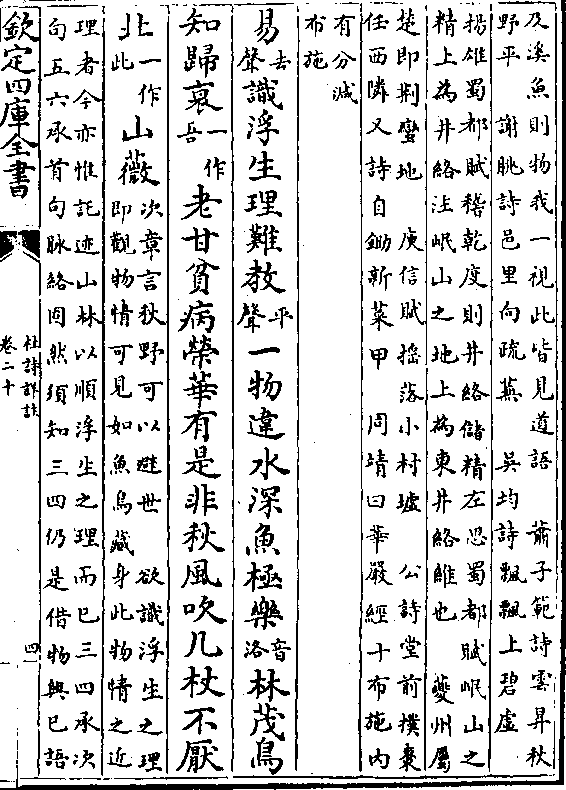 及溪魚則物我一視此皆見道語　蕭子範詩雲昇秋
野平　謝朓詩邑里向疏蕪　吳均詩飄飄上碧虛
揚雄蜀都賦稽乾度則井絡儲精左思蜀都賦岷山之
精上為井絡注岷山之地上為東井絡維也　夔州屬
楚即荆蠻地　庾信賦揺落小村墟　公詩堂前撲棗
任西隣又詩自鋤新菜甲　周靖曰華嚴經十布施内
有分減
布施
易去聲識浮生理難教平聲一物違水深魚極樂音洛林茂鳥
知歸衰一作吾老甘貧病榮華有是非秋風吹几杖不厭
北一作此山薇次章言秋野可以避世　欲識浮生之理
即觀物情可見如魚鳥藏身此物情之近
理者今亦惟託迹山林以順浮生之理而已三四承次
句五六承首句脉絡固然須知三四仍是借物興己語
欽定四庫全書
杜詩詳註
卷二十
四